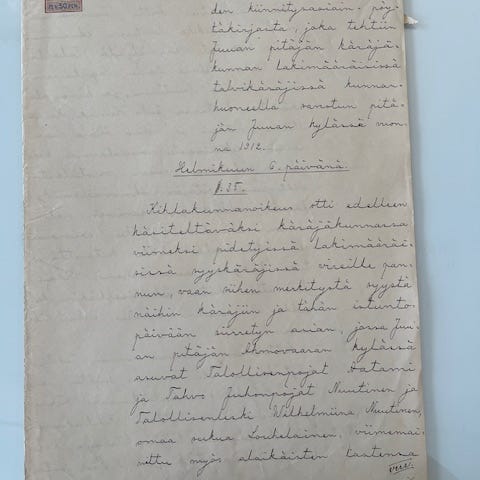 den kiinnitysasiain pöy-
täkirjasta, joka tehtiin
Juuan pitäjän käräjä-
kunnan lakimääräisissä
talvikäräjissä kunnan-
huoneella sanotun pitä-
jän Juuan kylässä vuon-
na 1912.
Helmikuun 6. päivänä.
§. 35.
Kihlakunnanoikeus otti edelleen
käsiteltäväksi käräjäkunnassa
viimeksi pidetyissä lakimääräi-
sissä syyskäräjissä vireille pan-
nun, vaan siihen merkitystä syystä
näihin käräjiin ja tähän istunto-
päivään siirretyn asian, jossa Juu-
an pitäjän Ahmovaaran kylässä
asuvat Talollisenpojat Aatami
ja Tahvo Juhonpojat Nuutinen ja
Talollisenleski Wilhelmiina Nuutinen,
omaa sukua Louhelainen, viimemai-
nittu myös alaikäisten lastensa